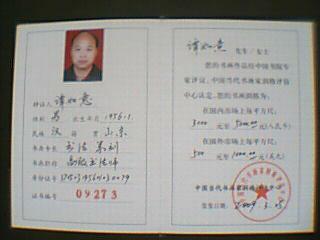 持证人
性别 男 出生年月 1956.1.
民族 汉 籍贯 山东
书法 篆刻
高级书法师
证书编号 09273
如意 先生/女士
您的书画作品经中国书院专
家评议,中国当代书画家润格评估
中心认定,您的书画润格为:
在国内市场上每平方尺:
3000 元至 5000.00 元(人民币)
在国外市场上每平方尺:
500 元至 1000.00 元(美元)
中国当代书画家润格评估中心
发证日期: 2009